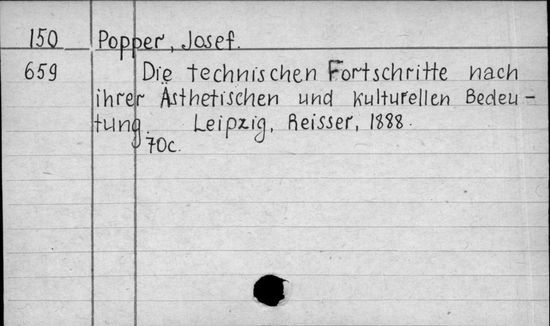 150 Popper, Josef.
659 Die technischen Fortschritte nach
ihrer Ästhetischen und kulturellen Bedeu-
tung. Leipzig, Reisser, 1888.
70c.